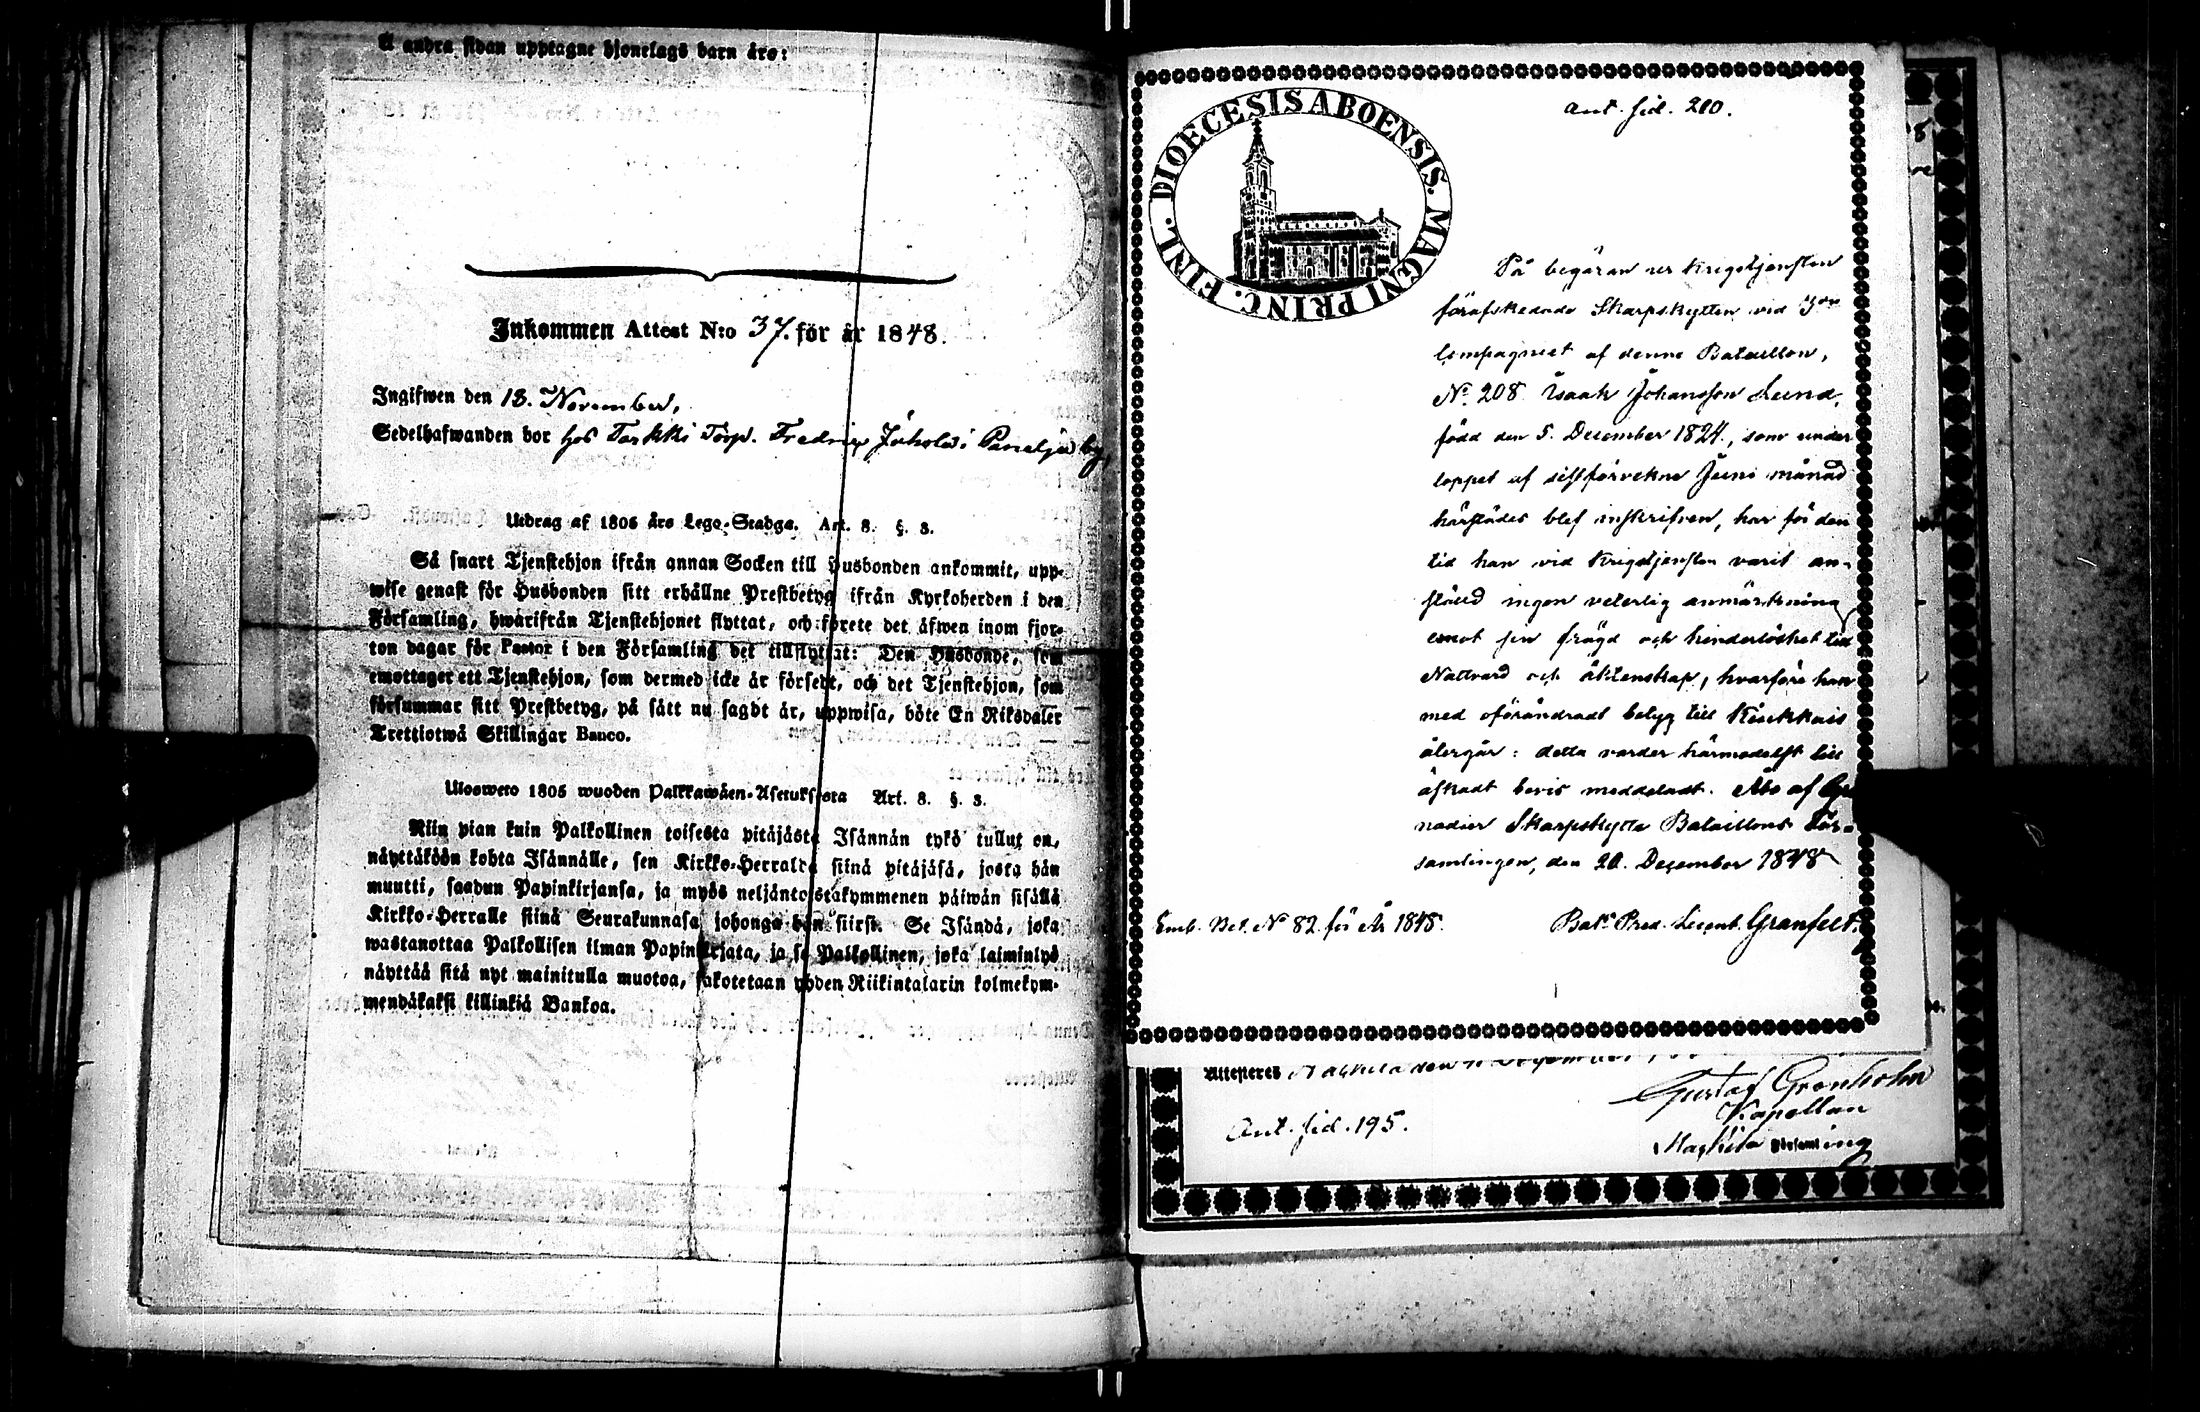 Å andra sidan upptagne hjonelags barn äro:
Inkommen Attest N:o 37. för år 1848.
Ingifwen den 13. November,
Sedelhafwanden bor hos Torp. Fredrix i Panelja by
Utdrag af 1805 års Lego-Stadga. Art. 8. §. 3.
Så snart Tjenstehjon ifrån annan Socken till Husbonden ankommit, upp-
wise genast för Husbonden sitt erhållne Prestbetyg ifrån Kyrkoherden i den
Församling, hwarifrån Tjenstehjonet flyttat, och förete det äfwen inom fjor-
ton dagar för Pastor i den Församling det tillflyttat: Den Husbonde, som
emottager ett Tjenstehjon, som dermed icke är försedt, och det Tjenstehjon, som
försummar sitt Prestbetyg, på sätt nu sagdt är, uppwisa, böte En Riksdaler
Trettiotwå Skillingar Banco.
Ulosweto 1805 wuoden Palkkawäen-Asetuksesta Art. 8. §. 3.
Niin pian kuin Palkollinen toisesta pitäjästä Isännän tykö tullut on,
näyttäköön kohta Isännälle, sen Kirkko-Herralda siinä pitäjäsä, josta hän
muutti, saadun Papinkirjansa, ja myös neljäntoistakymmenen päiwän sisällä
Kirkko-Herralle siinä Seurakunnasa johonga hän siirsi. Se Isändä, joka
wastanottaa Palkollisen ilman Papinkirjata, ja se Palkollinen, joka laiminlyö
näyttää sitä nyt mainitulla muotoa, sakotetaan yhden Riikintalarin kolmekym-
mendäkaksi killinkiä Bankoa.
DIOECESIS ABOENSIS. MAGNI PRINC. FINL.
Ant. sid. 210.
På begäran ur krigstjensten
förafskedade Skarpskytten vid 3dje
Compagniet af denne Bataillon,
No. 208 Isaak Johansson Lund,
född den 5. December 1824., som under
loppet af sistförvekne Juni månad
härstädes blef inskrifven, har för den
tid han vid krigstjensten varit an-
ställd ingen veterlig anmärkning
emot sin frägd och hinderlöshet till
Nattvard och äktenskap, hvarföre han
med oförändradt betyg till Kiukkais
återgår: detta varder härmedelst till
äskadt bevis meddeladt. Åbo af Gre
nadier Skarpskytte Bataillons För-
samlingen, den 20. December 1848
Bats Pred. Granfelt.
Emb. Bet. No 82. för År 1848.
Attesteras den
Gustaf Grönholm
Kapellan
Ant. sid. 195.
Församling